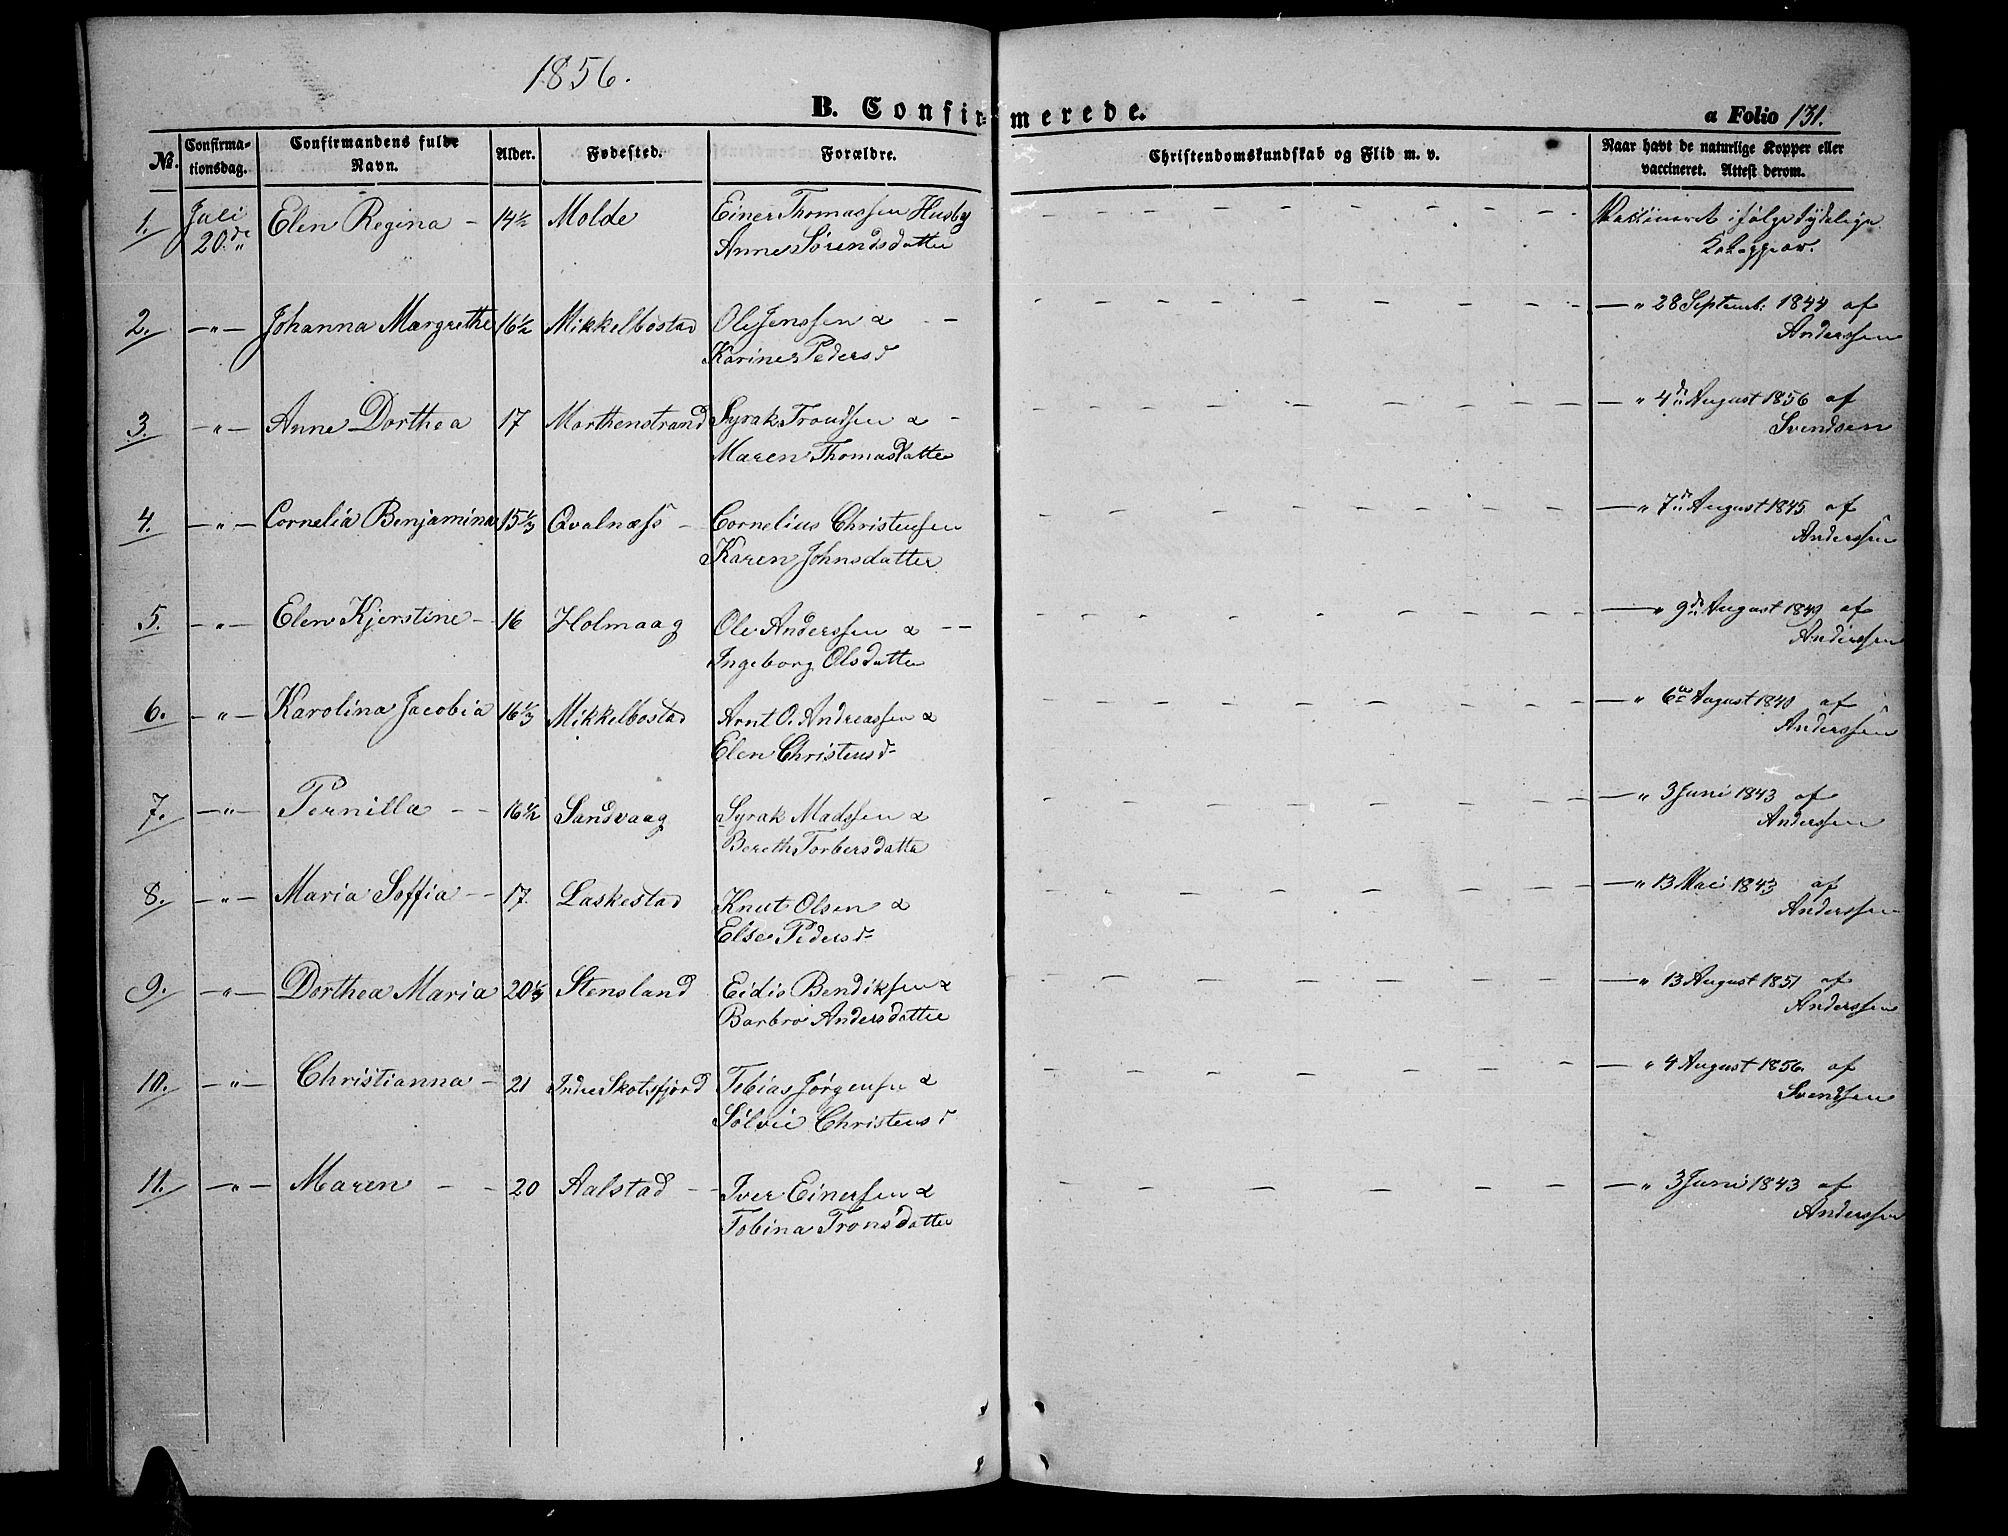 1856.
B. Confirmerede.
a Folio 131.
No. Confirmationsdag. Confirmandens fulde Navn. Alder. Fødested. Forældre. Christendomskundskab og Flid m. v. Naar havt de naturlige Kopper eller vaccineret. Attest derom.
1. Juli 20de Elen Regina - 14½ Molde Einer Thomassen Husby Vaksineret ifølge tydelige
Anne Sørendsdatter Kokoppear.
2. -"- Johanna Margrethe 16½ Mikkelbostad Ole Jenssen & - - -" 28 Septemb: 1844 af
Karine Pedersd Anderssen
3. -"- Anne Dorthea 17 Morthenstrand Syrak Trondsen & - -" 4de August 1856 af
Maren Thomasdatter Svendsen
4. -"- Cornelia Benjamina 15⅓ Qvalnæss - Cornelius Christensen -" 7de August 1845 af
Karen Johnsdatter Anderssen
5. -"- Elen Kjerstine - 16 Holmaag Ole Anderssen & - - -" 9de August 1849 af
Ingeborg Olsdatter Anderssen
6. -"- Karolina Jacobia 16⅓ Mikkelbostad Arnt O. Andreassen & -" 6te August 1840 af
Elen Christensd- Anderssen
7. -"- Pernilla - - 16½ Sandvaag Syrak Madssen & -" 3 Juni 1843 af
Bereth Torbersdatter Anderssen
8. -"- Maria Soffia - - 17. Laskestad Knut Olsen & -" 13 Mai 1843 af
Else Pedersd- Anderssen
9. -"- Dorthea Maria 20⅓ Stensland Eidis Bendiksen & -" 13 August 1851 af
Barbro Andersdatter Anderssen
10. -"- Christianna - 21 Indre Skotsfjord Tobias Jørgensen & -" 4 August 1856. af
Sølvie Christensd Svendsen
11. -"- Maren - - 20 Aalstad - - Iver Einersen & -" 3 Juni 1843 af
Tobina Tronsdatter Anderssen